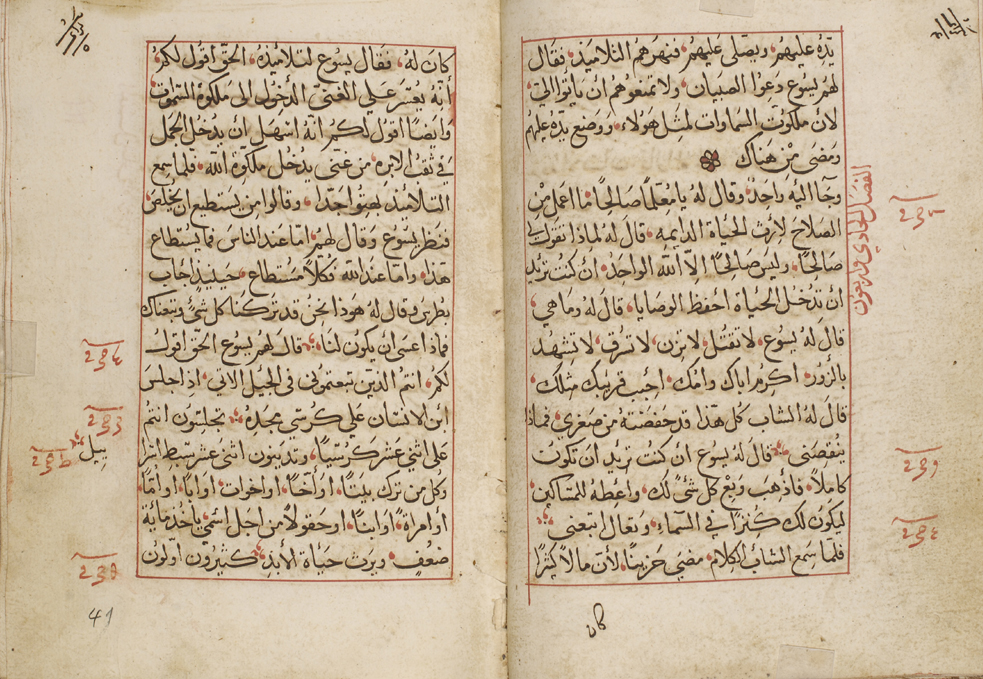 يدَه عليهم، ويصلى عليهم، فنهرهم التلاميذ، فقال
لهم يسوع دعوا الصبيان ولا تمنعوهم أن يأتوا الىّ
لان ملكوت السماوات لمثل هولاء، ووضع يدَه عليهم
ومضى من هناك
وجا اليه واحدٌ، وقال له يا معلماً صالحاً، ما اعمل من
الصلاح لارث الحياة الدايمه، قال له لماذا تقول لى
صالحاً، وليس صالحاً الاّ الله الواحد، ان كنت تريد
أن تدخل الحياة احفظ الوصايا، قال له وما هي
قال له يسوع، لا تقتل، لا تزن، لا تسرق، لا تشهد
بالزور، اكرم اباك وامّك، احبب قريبك مثلك،
قال له الشاب كل هذا قد حفضته من صغرى، فماذا
ينقصنى، قال له يسوع أن كنت تريد أن تكون
كاملاً، فاذهب وبع كل شى لك، واعطه للمساكين
ليكون لك كنزاً في السماء، وتعال اتبعنى
فلما سمع الشاب الكلام، مضى حزيناً، لأن مالاً كثيراً
كان
الفصل الحادي و اربعون
كان له، فقال يسوع لتلاميذه، الحق اقول لكم،
أنّه يعسر علي الغنىّ الدخول الى ملكوة السموات
وايضاً اقول لكم انّه اسهل ان يدخل الجمل
في ثقب الابره، من غنى يدخل ملكوة الله، فلما سمع
التلاميذ بهتوا جداً، وقالوا من يستطيع ان يخلص،
فنظر يسوع وقال لهم، امّا عند الناس فما يستطاع
هذا، وامّا عند الله فكلاً مستطاع، حينيذ اجاب
بطرس وقال له هوذا نحن قد تركنا كل شئ وتبعناك
فماذا عسى ان يكون لنا، قال لهم يسوع الحق اقول
لكم، انتم الذين تبعتمونى فى الجيل الاتي، اذ اجلس
ابن الانسان علي كرسى مجده، تجلسون انتم
على اثني عشر كرسيّاً، وتدينون اثنى عشر سبط اسرا
ييل
وكل من ترك بيتاً، أو أخاً، او اخوات، او اباً، او امّاً،
او امراةً، او ابناً، او حقولاً من اجل اسمي، ياخذ ماية
ضعفٍ، ويرث حياة الأبد، كثيرون اولون
41